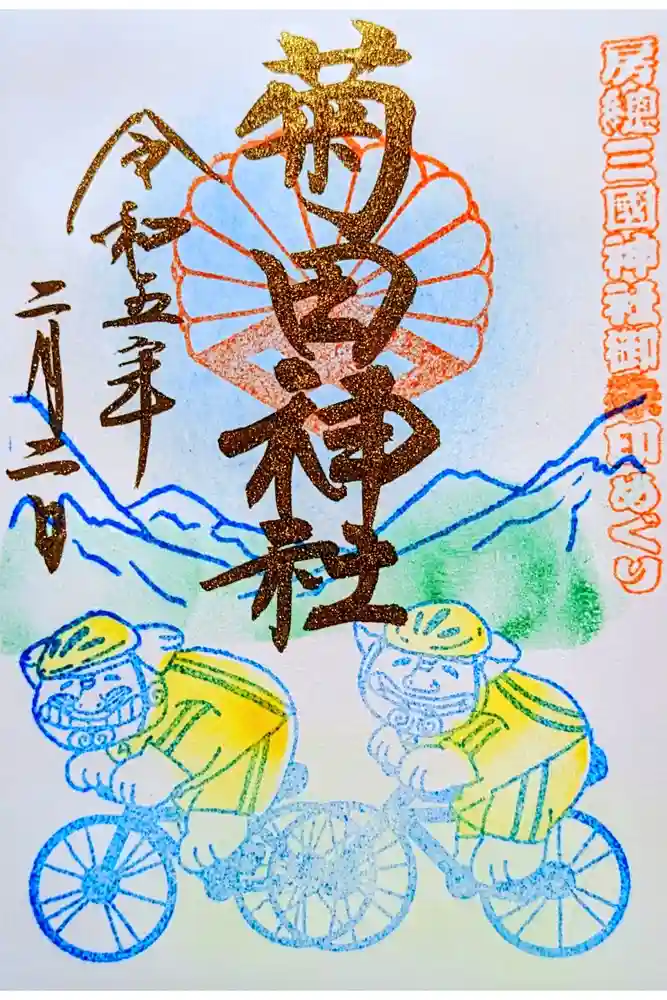 房總三國神社御朱印めぐり
菊田神社
令和五年
二月二日